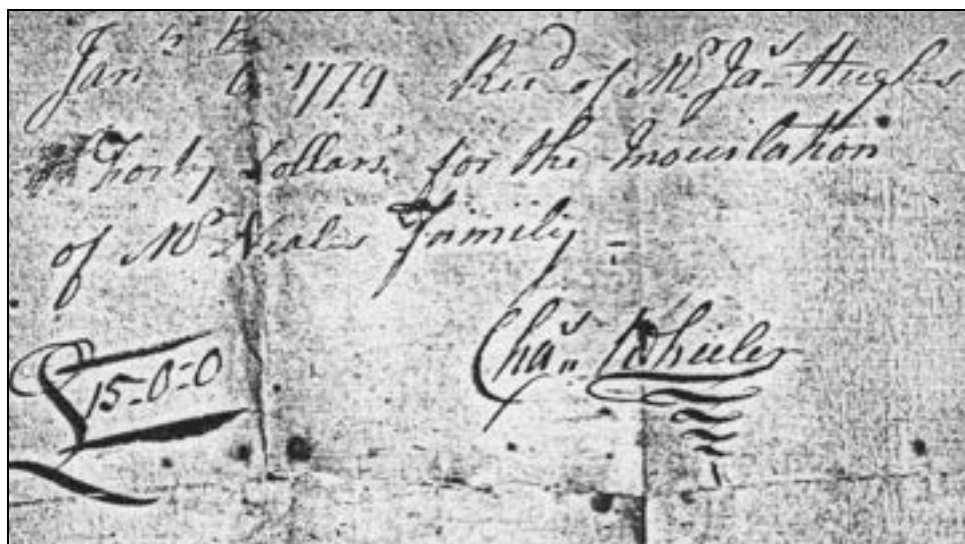 Jany 6th 1779 Recd of Mr Jas Hughes
Forty Dollars for the Inoculation
of Mr Neales Family -
Chas Wheeler
£15-0-0